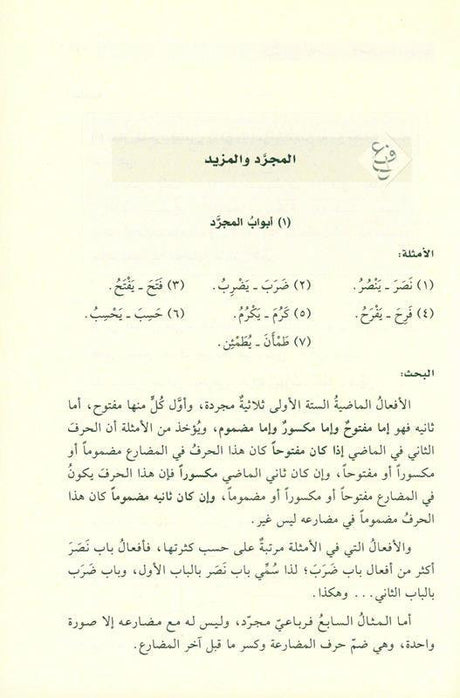 المجرَّد والمزيد
(١) أبوابُ المجرَّد
الأمثلة:
(١) نَصَرَ ـ يَنْصُرُ. (٢) ضَرَبَ ـ يَضْرِبُ. (٣) فَتَحَ ـ يَفْتَحُ.
(٤) فَرِحَ ـ يَفْرَحُ. (٥) كَرُمَ ـ يَكْرُمُ. (٦) حَسِبَ ـ يَحْسِبُ.
(٧) طَمْأَنَ ـ يُطَمْئِن.
البحث:
الأفعالُ الماضيةُ الستة الأولى ثلاثيةٌ مجردة، وأوَّل كُلٍّ منها مفتوح، أما
ثانيه فهو إما مفتوحٌ وإما مكسورٌ وإما مضموم، ويُؤخذ من الأمثلة أن الحرفَ
الثاني في الماضي إذا كان مفتوحاً كان هذا الحرفُ في المضارع مضموماً أو
مكسوراً أو مفتوحاً، وإن كان ثاني الماضي مكسوراً فإن هذا الحرفَ يكونُ
في المضارع مفتوحاً أو مكسوراً أو مضموماً، وإن كان ثانيه مضموماً كان هذا
الحرفُ مضموماً في مضارعه ليس غير.
والأفعالُ التي في الأمثلة مرتبةٌ على حسب كثرتها، فأفعالُ باب نَصَرَ
أكثر من أفعال باب ضَرَبَ؛ لذا سُمِّي باب نَصَر بالباب الأول، وباب ضَرَب
بالباب الثاني... وهكذا.
أما المثالُ السابعُ فرباعيّ مجرّد، وليس له مع مضارعه إلا صورة
واحدة، وهي ضمّ حرف المضارعة وكسر ما قبل آخر المضارع.